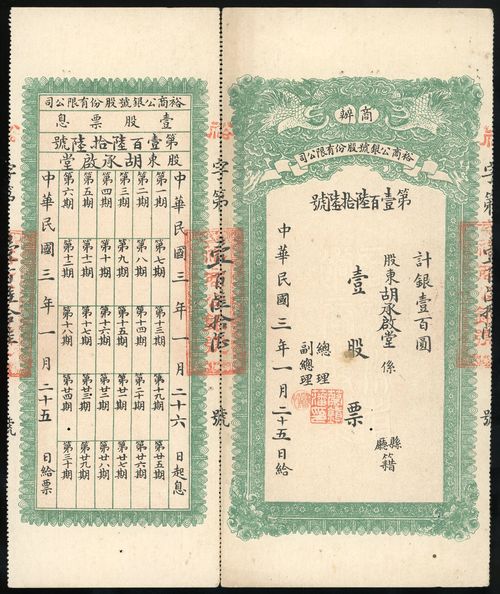 商辦
裕商公銀號股份有限公司
第壹百陸拾陸號
計銀壹百圓
股東胡承啟堂係 縣廳籍
壹股票
總理
副總理
中華民國三年一月二十五日給
字第壹百陸拾陸號
裕商公銀號股份有限公司
壹股票息
第壹百陸拾陸號
股東胡承啟堂
中華民國三年一月二十六日起息
第一期 第七期 第十三期 第十九期 第廿五期
第二期 第八期 第十四期 第二十期 第廿六期
第三期 第九期 第十五期 第廿一期 第廿七期
第四期 第十期 第十六期 第廿二期 第廿八期
第五期 第十一期 第十七期 第廿三期 第廿九期
第六期 第十二期 第十八期 第廿四期 第三十期
中華民國三年一月二十五日給票